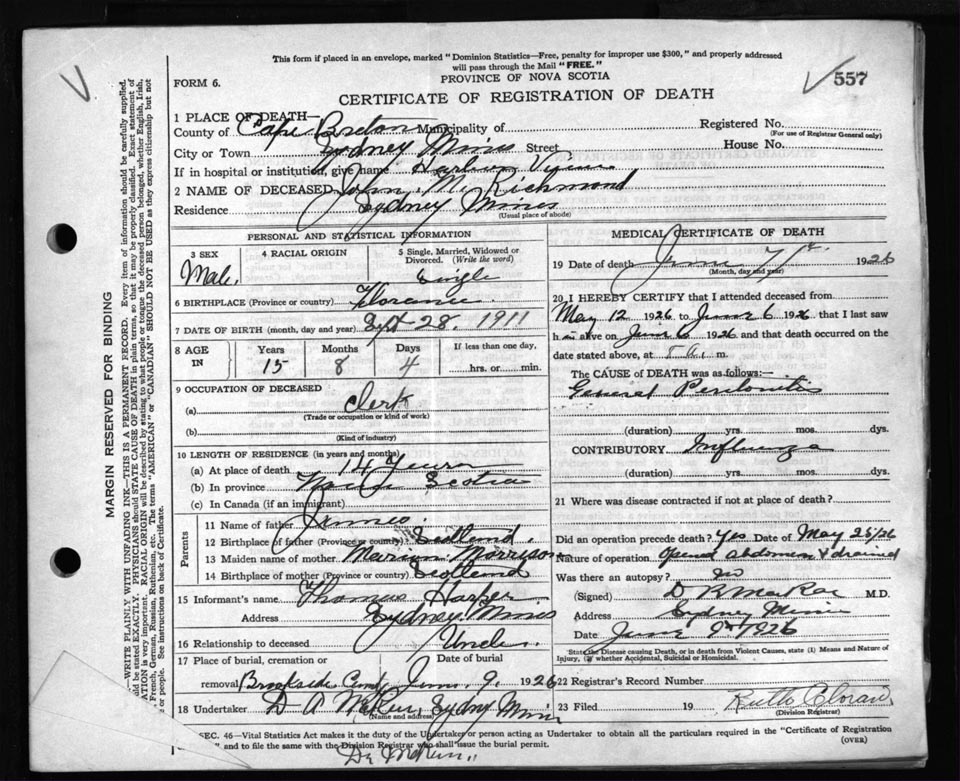 This form if placed in an envelope, marked "Dominion Statistics—Free, penalty for improper use $300," and properly addressed
will pass through the Mail "FREE."
PROVINCE OF NOVA SCOTIA
557
FORM 6.
CERTIFICATE OF REGISTRATION OF DEATH
1 PLACE OF DEATH—
County of Cape Breton Municipality of Registered No.
(For use of Registrar General only)
City or Town Sydney Mines Street House No.
If in hospital or institution, give name Harbor View
2 NAME OF DECEASED John M. Richmond
Residence Sydney Mines
(Usual place of abode)
PERSONAL AND STATISTICAL INFORMATION
3 SEX 4 RACIAL ORIGIN 5 Single, Married, Widowed or Divorced. (Write the word)
Male. Single
6 BIRTHPLACE (Province or country) Florence.
7 DATE OF BIRTH (month, day and year) Sept 28. 1911
8 AGE IN Years Months Days If less than one day,
15 8 4 hrs. or min.
9 OCCUPATION OF DECEASED
(a) Clerk
(Trade or occupation or kind of work)
(b)
(Kind of industry)
10 LENGTH OF RESIDENCE (in years and months)
(a) At place of death 14 Years
(b) In province Nova Scotia
(c) In Canada (if an immigrant)
Parents
11 Name of father James.
12 Birthplace of father (Province or country) Scotland.
13 Maiden name of mother Marion Morrison
14 Birthplace of mother (Province or country) Scotland
15 Informant's name Thomas Harper
Address Sydney Mines
16 Relationship to deceased Uncle.
17 Place of burial, cremation or Date of burial
removal Brookside Cemty June. 9. 1926
18 Undertaker D A Sydney Mines
(Name and address)
MEDICAL CERTIFICATE OF DEATH
19 Date of death June 7th. 1926
(Month, day and year)
20 I HEREBY CERTIFY that I attended deceased from
May 12 1926 to June 6 1926, that I last saw
h im alive on June 6 1926 and that death occurred on the
date stated above, at m.
The CAUSE of DEATH was as follows:—
General Peritonitis
(duration) yrs. mos. dys.
CONTRIBUTORY Influenza
(duration) yrs. mos. dys.
21 Where was disease contracted if not at place of death?
Did an operation precede death? Yes Date of May 25/26
Nature of operation Opened abdomen & drained
Was there an autopsy? no
(Signed) D R MacRae M.D.
Address Sydney Mines
Date June 1926
State the Disease causing Death, or in death from Violent Causes, state (1) Means and Nature of
Injury, (2) whether Accidental, Suicidal or Homicidal.
22 Registrar's Record Number
23 Filed 19 Ruth
(Division Registrar)
SEC. 46—Vital Statistics Act makes it the duty of the Undertaker or person acting as Undertaker to obtain all the particulars required in the "Certificate of Registration
and to file the same with the Division Registrar who shall issue the burial permit.
(OVER)
MARGIN RESERVED FOR BINDING
—WRITE PLAINLY WITH UNFADING INK—THIS IS A PERMANENT RECORD. Every item of information should be carefully supplied.
should be stated EXACTLY. PHYSICIANS should STATE CAUSE OF DEATH in plain terms, so that it may be properly classified. Exact statement of
is very important. RACIAL ORIGIN will be described by stating to what people or tongue the deceased person belonged, whether English, Irish,
French, German, Russian, Ruthenian etc. The terms "AMERICAN" or "CANADIAN" SHOULD NOT BE USED as they express citizenship but not
people. See instructions on back of Certificate.